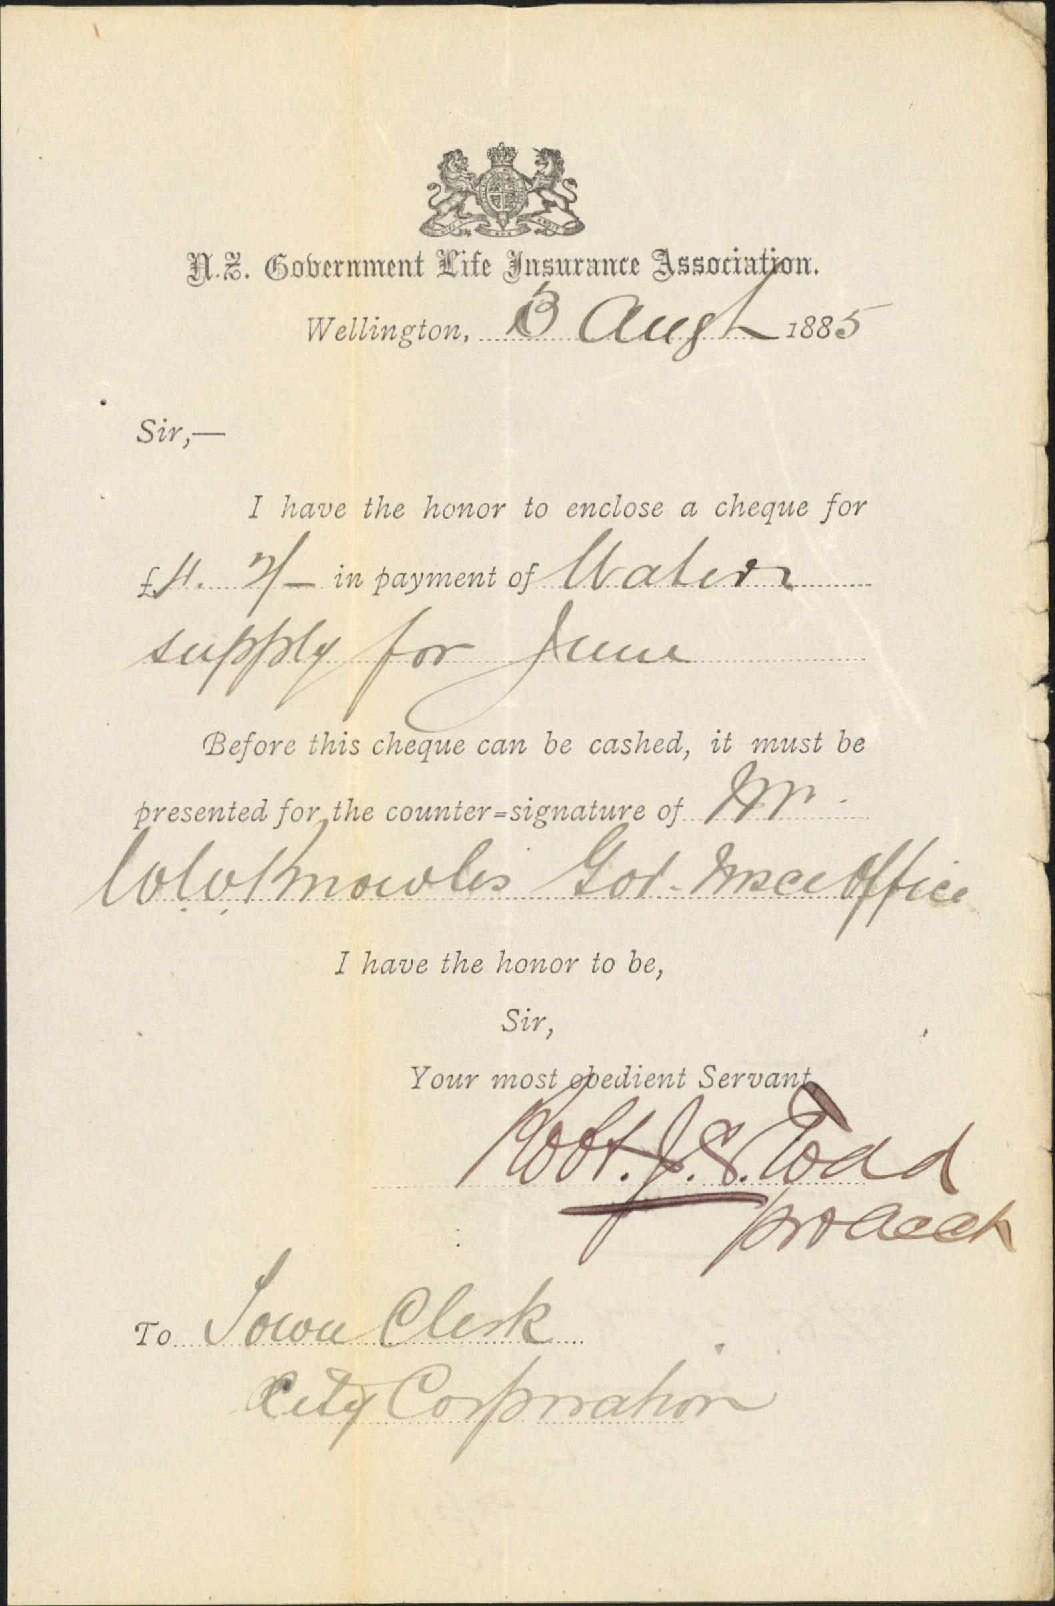 N.Z. Government Life Insurance Association.
Wellington, 3 Augt 1885
Sir,—
I have the honor to enclose a cheque for
£4. 2/– in payment of Water
supply for June
Before this cheque can be cashed, it must be
presented for the counter=signature of Mr.
W.W. Knowles Govt. Insce Office
I have the honor to be,
Sir,
Your most obedient Servant,
Robt. J. S. Todd
pro Acct
To Town Clerk
City Corporation